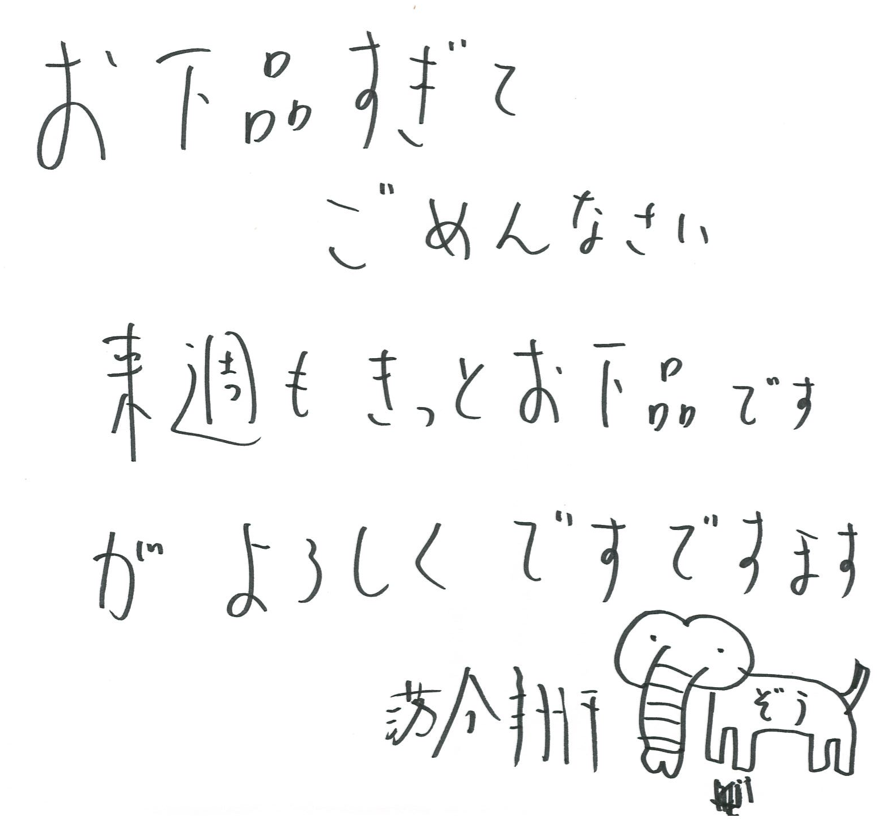 お下品すぎて
ごめんなさい
来週もきっとお下品です
がよろしくですですます
落合
ぞう